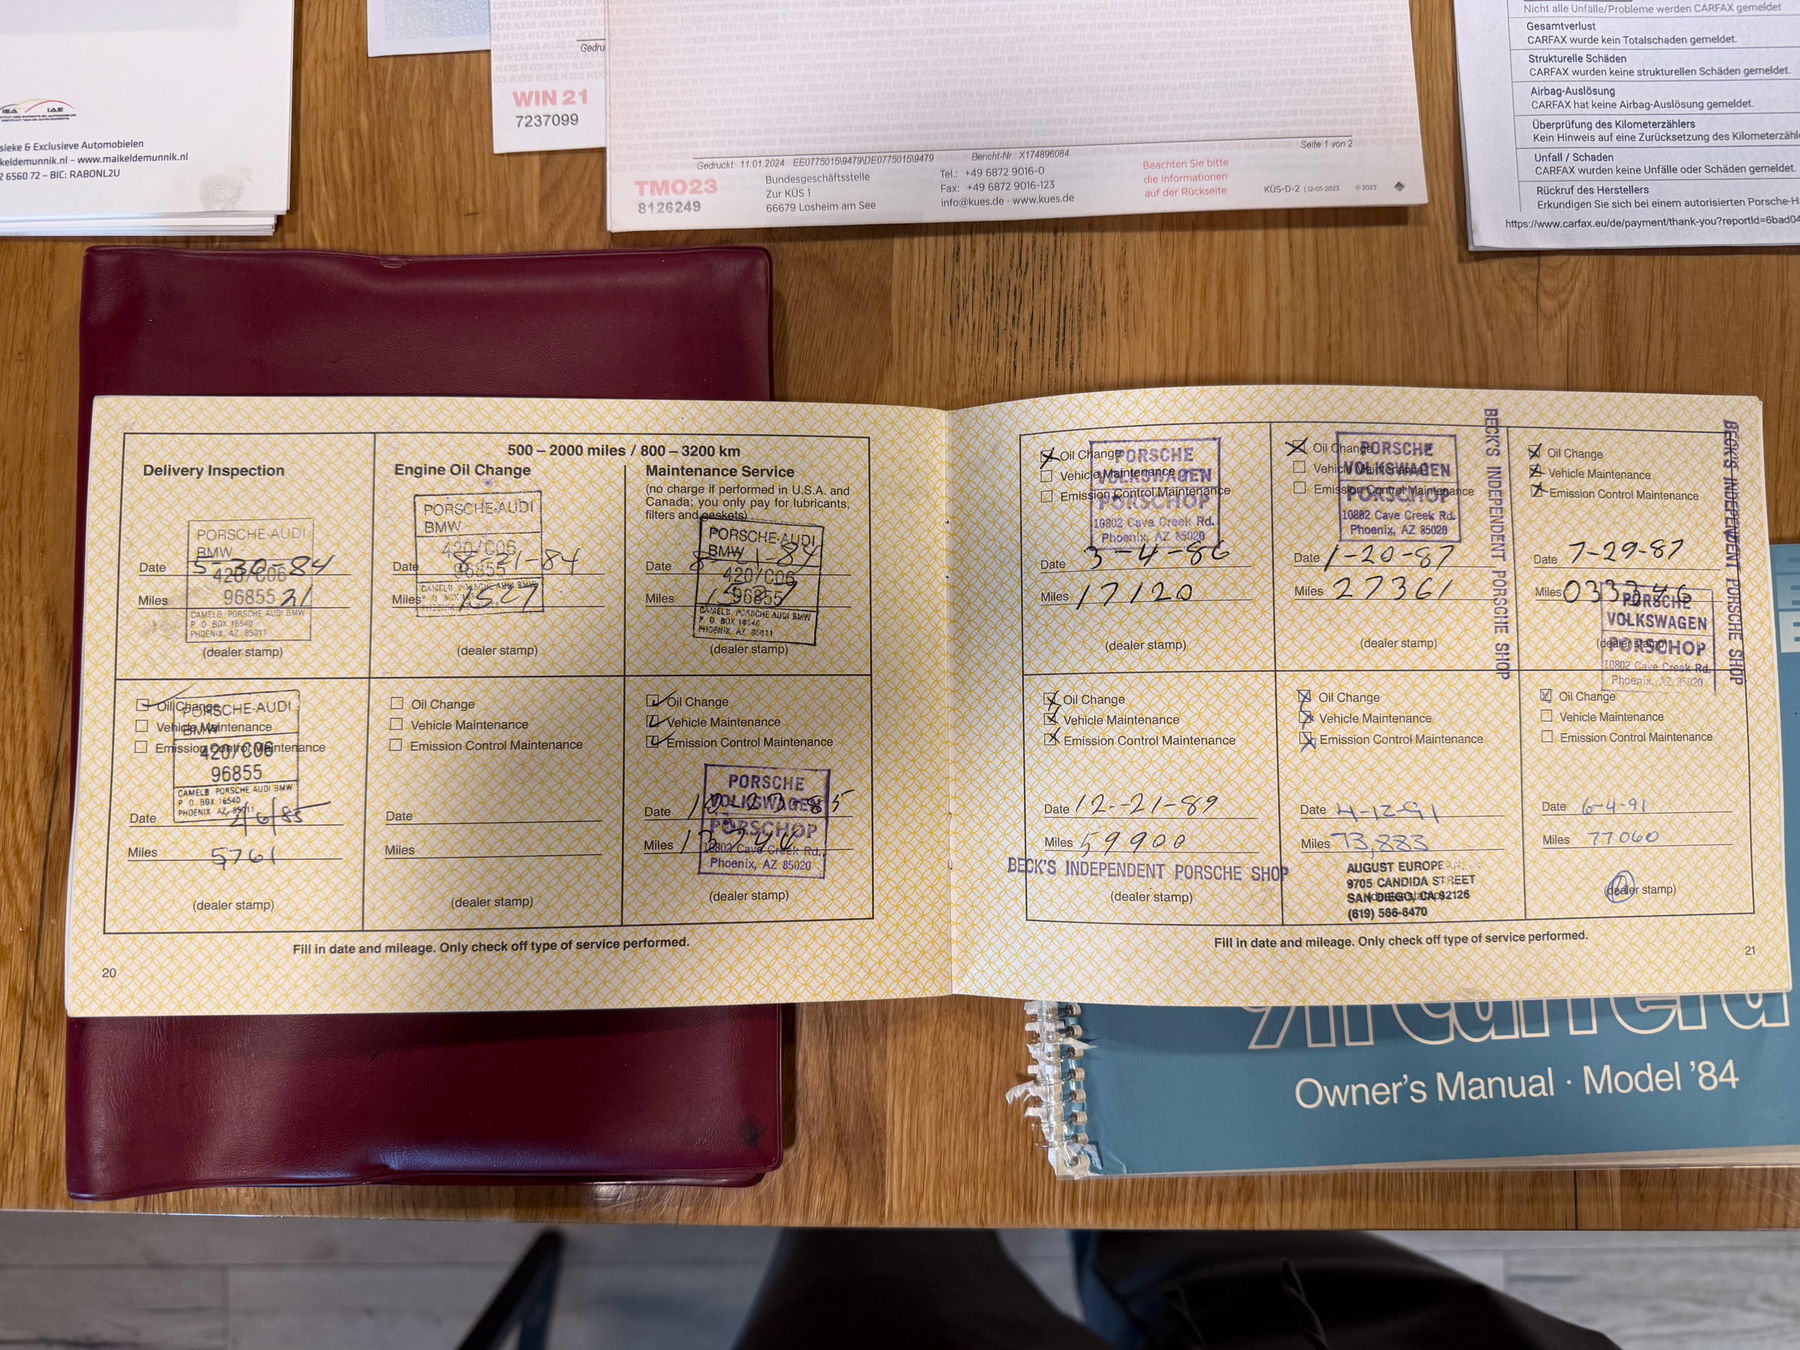 IEA IAE
sieke & Exclusieve Automobielen
keldemunnik.nl – www.maikeldemunnik.nl
2 6560 72 – BIC: RABONL2U
Gedru
WIN 21
7237099
Seite 1 von 2
Gedruckt 11.01.2024 EE0775015\9479\DE0775015\9479 Bericht-Nr. X174896084
TMO23
8126249
Bundesgeschäftsstelle
Zur KÜS 1
66679 Losheim am See
Tel.: +49 6872 9016-0
Fax: +49 6872 9016-123
info@kues.de · www.kues.de
Beachten Sie bitte
die Informationen
auf der Rückseite
KÜS-D-2 | 12-01-2023 © 2023
Nicht alle Unfälle/Probleme werden CARFAX gemeldet
Gesamtverlust
CARFAX wurde kein Totalschaden gemeldet.
Strukturelle Schäden
CARFAX wurden keine strukturellen Schäden gemeldet.
Airbag-Auslösung
CARFAX hat keine Airbag-Auslösung gemeldet.
Überprüfung des Kilometerzählers
Kein Hinweis auf eine Zurücksetzung des Kilometerzähl
Unfall / Schaden
CARFAX wurden keine Unfälle oder Schäden gemeldet.
Rückruf des Herstellers
Erkundigen Sie sich bei einem autorisierten Porsche-H
https://www.carfax.eu/de/payment/thank-you?reportId=6bad04
500 – 2000 miles / 800 – 3200 km
Delivery Inspection
PORSCHE-AUDI
BMW
Date 5-30-84
420/C06
96855
Miles 21
CAMELB PORSCHE AUDI BMW
P O BOX 16540
PHOENIX, AZ 85011
(dealer stamp)
Engine Oil Change
PORSCHE-AUDI
BMW
420/C06
96855
Date 8-21-84
Miles 1527
CAMELB PORSCHE AUDI BMW
(dealer stamp)
Maintenance Service
(no charge if performed in U.S.A. and
Canada; you only pay for lubricants,
filters and gaskets)
PORSCHE-AUDI
BMW
Date 8-21-84
420/C06
96855
Miles
CAMELB PORSCHE AUDI BMW
P O BOX 16540
PHOENIX, AZ 85011
(dealer stamp)
Oil Change
Vehicle Maintenance
Emission Control Maintenance
PORSCHE-AUDI
BMW
420/C06
96855
CAMELB PORSCHE AUDI BMW
P O BOX 16540
PHOENIX, AZ 85011
Date 4/6/85
Miles 5761
(dealer stamp)
Oil Change
Vehicle Maintenance
Emission Control Maintenance
Date
Miles
(dealer stamp)
Oil Change
Vehicle Maintenance
Emission Control Maintenance
PORSCHE
VOLKSWAGEN
PORSCHOP
10802 Cave Creek Rd.
Phoenix, AZ 85020
Date 10-23-85
Miles
(dealer stamp)
Fill in date and mileage. Only check off type of service performed.
20
Oil Change
Vehicle Maintenance
Emission Control Maintenance
PORSCHE
VOLKSWAGEN
PORSCHOP
10802 Cave Creek Rd.
Phoenix, AZ 85020
Date 3-4-86
Miles 17120
(dealer stamp)
Oil Change
Vehicle Maintenance
Emission Control Maintenance
PORSCHE
VOLKSWAGEN
PORSCHOP
10802 Cave Creek Rd.
Phoenix, AZ 85020
Date 1-20-87
Miles 27361
(dealer stamp)
BECK'S INDEPENDENT PORSCHE SHOP
Oil Change
Vehicle Maintenance
Emission Control Maintenance
Date 7-29-87
Miles 033346
PORSCHE
VOLKSWAGEN
PORSCHOP
10802 Cave Creek Rd.
Phoenix, AZ 85020
(dealer stamp)
BECK'S INDEPENDENT PORSCHE SHOP
Oil Change
Vehicle Maintenance
Emission Control Maintenance
Date 12-21-89
Miles 59900
BECK'S INDEPENDENT PORSCHE SHOP
(dealer stamp)
Oil Change
Vehicle Maintenance
Emission Control Maintenance
Date 4-12-91
Miles 73,883
AUGUST EUROPE
9705 CANDIDA STREET
SAN DIEGO, CA 92126
(619) 566-6470
Oil Change
Vehicle Maintenance
Emission Control Maintenance
Date 6-4-91
Miles 77060
(dealer stamp)
Fill in date and mileage. Only check off type of service performed.
21
911 Carrera
Owner's Manual · Model '84